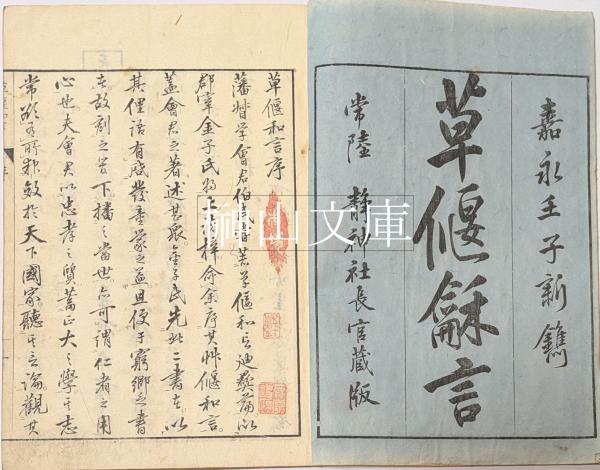 嘉永壬子新鐫
草偃龢言
常陸 静神社長官蔵版
草偃和言序
藩督学會君伯民嘗著草偃和言迪彝篇以
郡宰金子氏将上梓命余序其艸偃和言
蓋會君之著述甚衆金子氏先此二書者以
其俚語有感發童蒙之益且便于窮郷之書
者故刻之曽下播之當世亦可謂仁者之用
心也夫會君以忠孝之質蓄正大之學其志
常欲有所報效於天下國家聽其立論觀其
榊山文庫